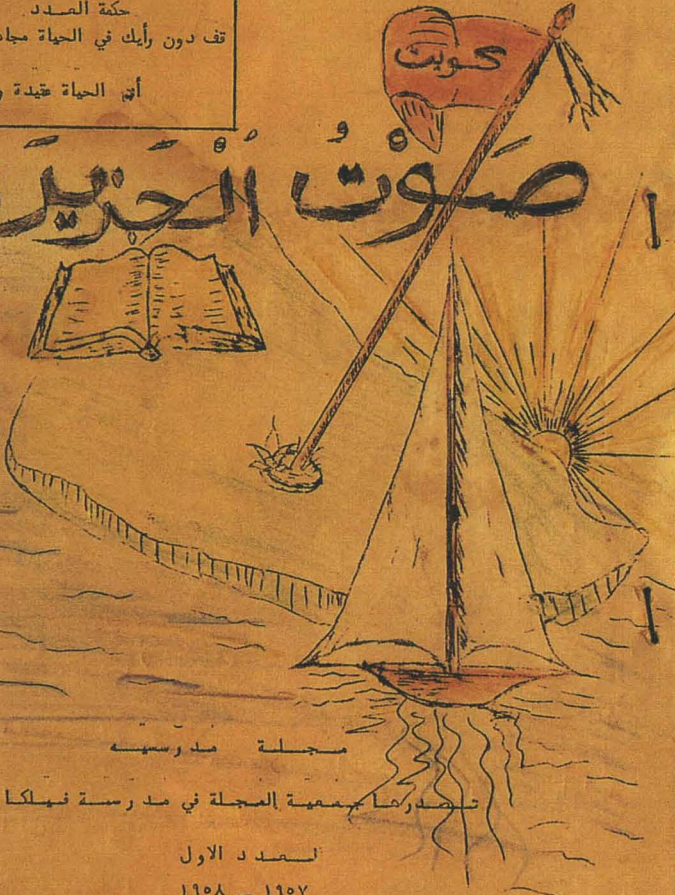 حكمة العدد
قف دون رأيك في الحياة
الحياة عقيدة
كويت
صَوْتُ
مجلة مدرسية
تصدرها جمعية المجلة في مدرسة فيلكا
العدد الاول
١٩٥٧ - ١٩٥٨